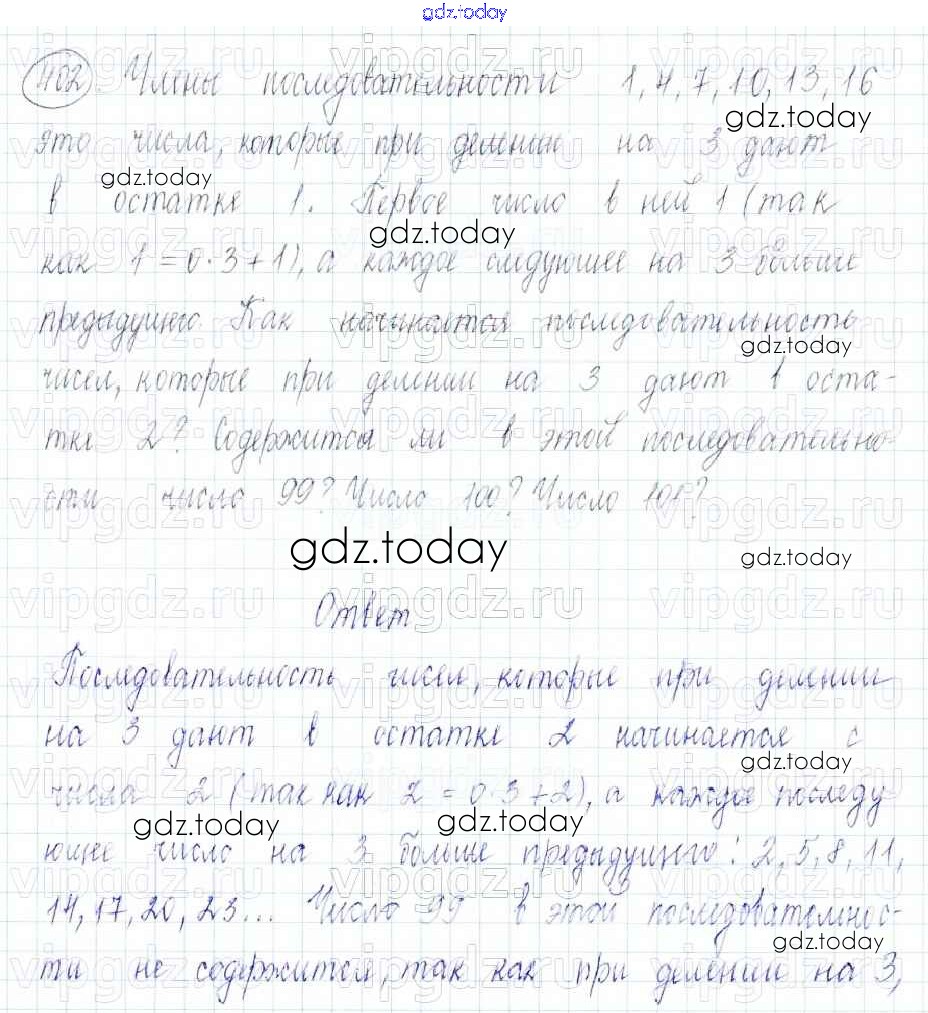 gdz.today
402 Члены последовательности 1, 4, 7, 10, 13, 16
gdz.today
это числа, которые при делении на 3 дают
gdz.today
в остатке 1. Первое число в ней 1 (так
gdz.today
как 1 = 0·3+1), а каждое следующее на 3 больше
предыдущего. Как начинается последовательность
gdz.today
чисел, которые при делении на 3 дают в оста-
тке 2? Содержится ли в этой последовательно-
сти число 99? Число 100? Число 101?
gdz.today
gdz.today
Ответ
Последовательность чисел, которые при делении
на 3 дают в остатке 2 начинается с
gdz.today
числа 2 (так как 2 = 0·3+2), а каждое последу
gdz.today
gdz.today
ющее число на 3 больше предыдущего: 2, 5, 8, 11,
14, 17, 20, 23... Число 99 в этой последовательнос-
gdz.today
ти не содержится, так как при делении на 3,
vipgdz.ru